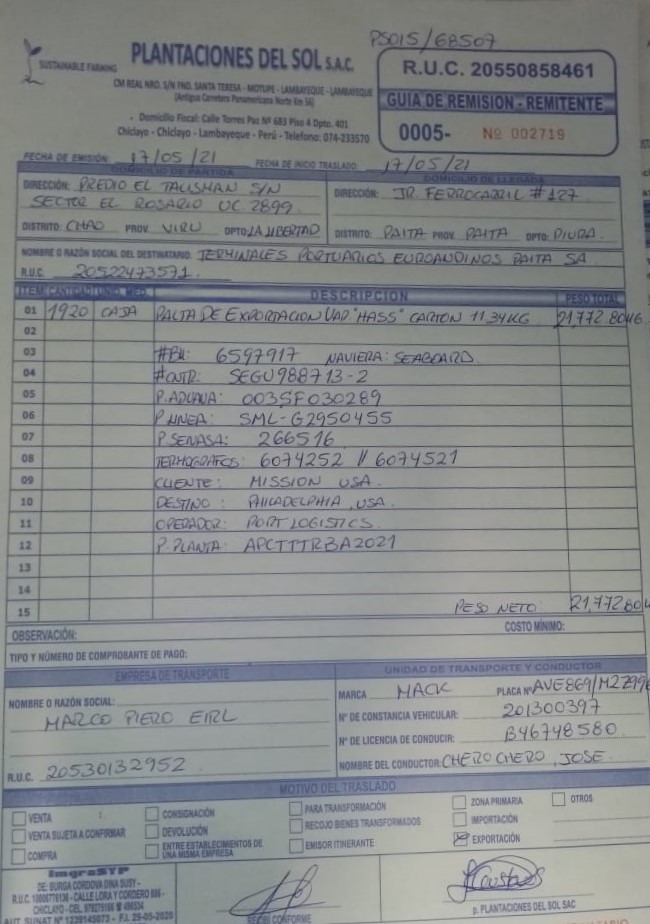 PS015/68507
SUSTAINABLE FARMING
PLANTACIONES DEL SOL S.A.C.
CM REAL NRO. S/N FND. SANTA TERESA - MOTUPE - LAMBAYEQUE - LAMBAYEQUE
(Antigua Carretera Panamericana Norte Km 56)
- Domicilio Fiscal: Calle Torres Paz Nº 683 Piso 4 Dpto. 401
Chiclayo - Chiclayo - Lambayeque - Perú - Telefono: 074-233570
R.U.C. 20550858461
GUIA DE REMISION - REMITENTE
0005- Nº 002719
FECHA DE EMISIÓN: 17/05/21 FECHA DE INICIO TRASLADO: 17/05/21
DOMICILIO DE PARTIDA DOMICILIO DE LLEGADA
DIRECCIÓN: PREDIO EL TALISMAN S/N DIRECCIÓN: JR. FERROCARRIL #127
SECTOR EL ROSARIO UC 2899
DISTRITO: CHAO PROV. VIRU DPTO: LA LIBERTAD DISTRITO: PAITA PROV. PAITA DPTO: PIURA.
NOMBRE O RAZÓN SOCIAL DEL DESTINATARIO: TERMINALES PORTUARIOS EUROANDINOS PAITA SA.
R.U.C. 20522473571.
ITEM CANTIDAD UNID. MED. DESCRIPCION PESO TOTAL
01 1920 CAJA PALTA DE EXPORTACION VAR "HASS" CARTON 11.34KG 21,772.80
02
03 #BK: 6597917 NAVIERA: SEABOARD
04 #CNTR: SEGU988713-2
05 P.ADUANA: 003SF030289
06 P.LINEA: SML-G2950455
07 P.SENASA: 266516
08 TERMOGRAFOS: 6074252 // 6074521
09 CLIENTE: MISSION USA.
10 DESTINO: PHILADELPHIA, USA.
11 OPERADOR: PORT LOGISTICS.
12 P.PLANTA: APCTTTRBA2021
13
14
15 PESO NETO: 21,772.80
OBSERVACIÓN: COSTO MÍNIMO:
TIPO Y NÚMERO DE COMPROBANTE DE PAGO:
EMPRESA DE TRANSPORTE UNIDAD DE TRANSPORTE Y CONDUCTOR
NOMBRE O RAZÓN SOCIAL: MARCA MACK PLACA Nº AVE869/M2Z996
MARCO PIERO EIRL Nº DE CONSTANCIA VEHICULAR: 201300397
Nº DE LICENCIA DE CONDUCIR: B46748580
R.U.C. 20530132952 NOMBRE DEL CONDUCTOR: CHERO CHERO, JOSE
MOTIVO DEL TRASLADO
VENTA CONSIGNACIÓN PARA TRANSFORMACIÓN ZONA PRIMARIA OTROS
VENTA SUJETA A CONFIRMAR DEVOLUCIÓN RECOJO BIENES TRANSFORMADOS IMPORTACIÓN
COMPRA ENTRE ESTABLECIMIENTOS DE UNA MISMA EMPRESA EMISOR ITINERANTE EXPORTACIÓN
ImgraSYP
DE: BURGA CORDOVA DINA SUSY -
R.U.C. 10006776136 - CALLE LORA Y CORDERO 886 -
CHICLAYO - CEL.
AUT. SUNAT Nº 1239145073 - F.I. 29-05-2020
RECIBI CONFORME
p. PLANTACIONES DEL SOL SAC